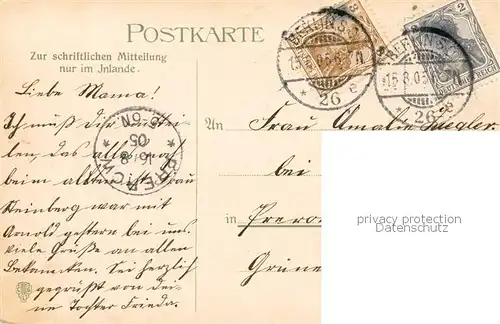 POSTKARTE
Zur schriftlichen Mitteilung
nur im Jnlande.
Liebe Mama!
Ich muß Dir mittei-
len, das alles noch
beim alten ist. Frau
Steinberg war mit
Arnold gestern bei uns.
Viele Grüße an allen
Bekannten. Sei herzlich
gegrüßt von Dei-
ne Tochter Frieda.
BERLIN S.
15.8.05. 6-7 N
* 26 e
BERLIN S.
*15.8.05. N
* 26
2
DEUTSCHES REICH
PREROW
16 8 05
6-7N
An Frau Amalie Ziegler.
bei
in Prero
Grüne
privacy protection
oldthing.de